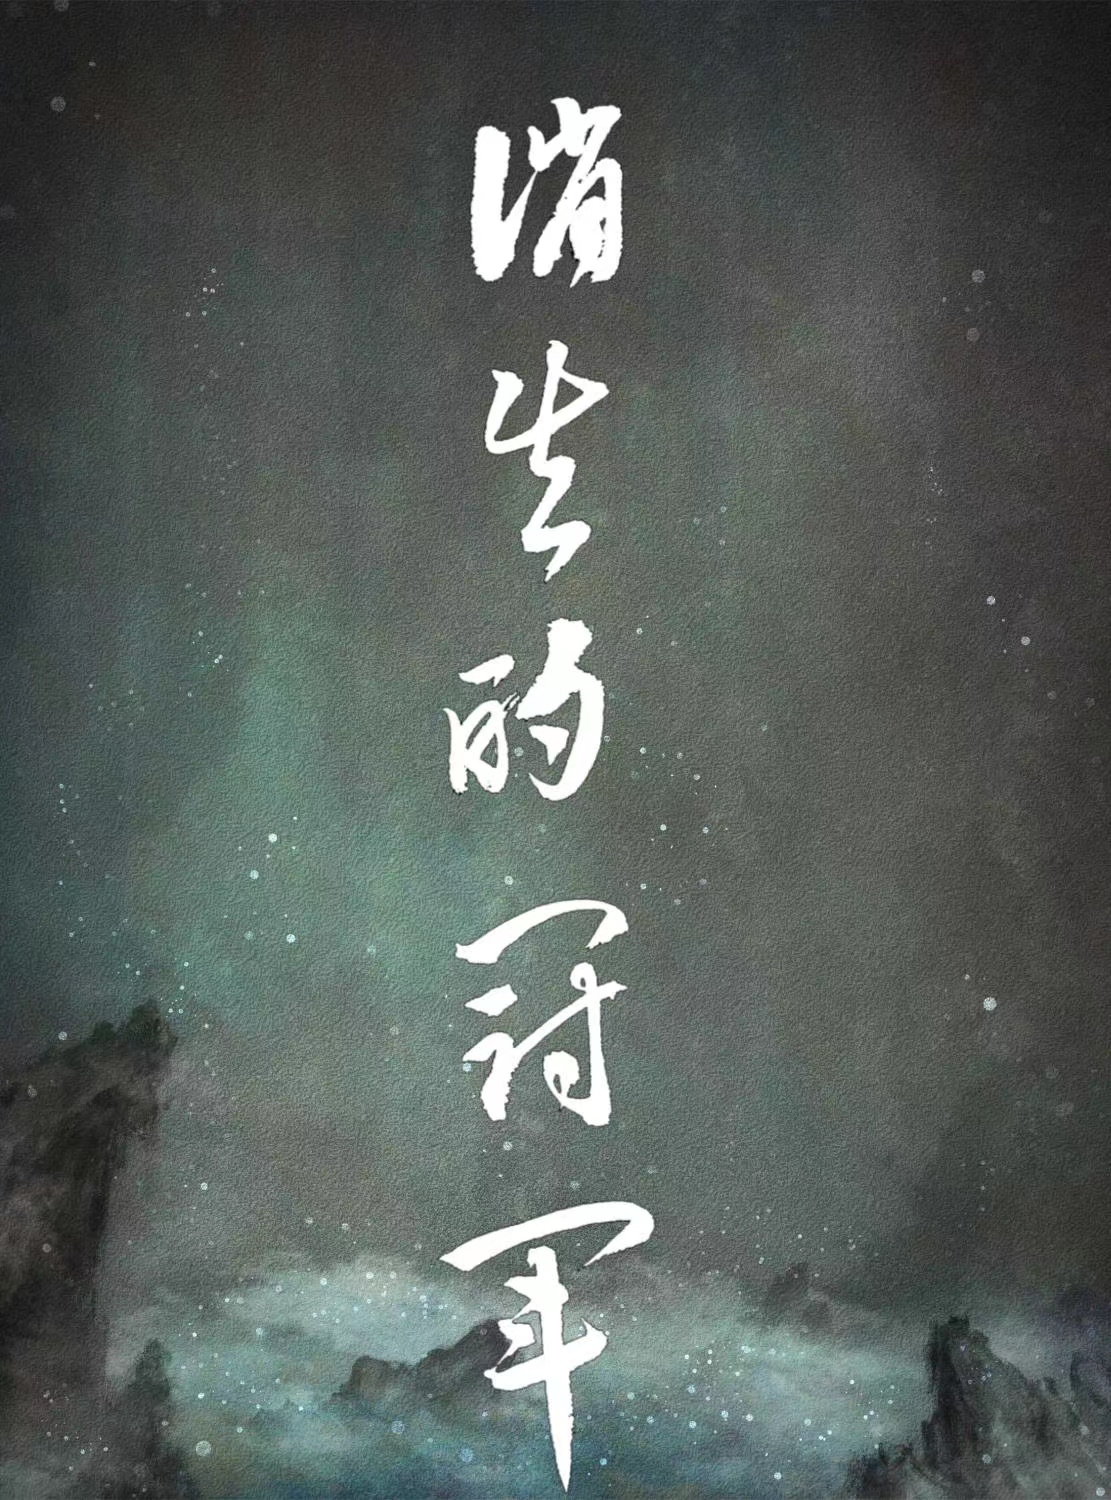 消失的冠军